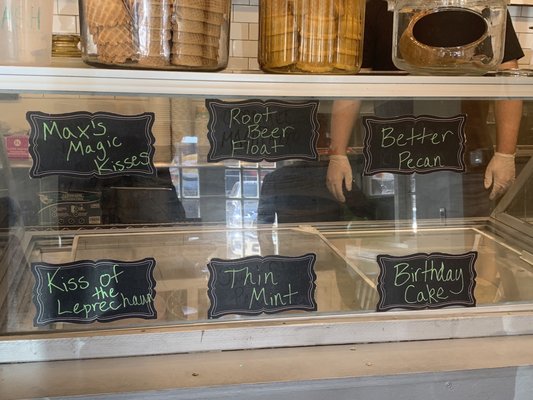 Max's
Magic
Kisses
Root
Beer
Float
Better
Pecan
Kiss of
the
Leprechaun
Thin
Mint
Birthday
Cake